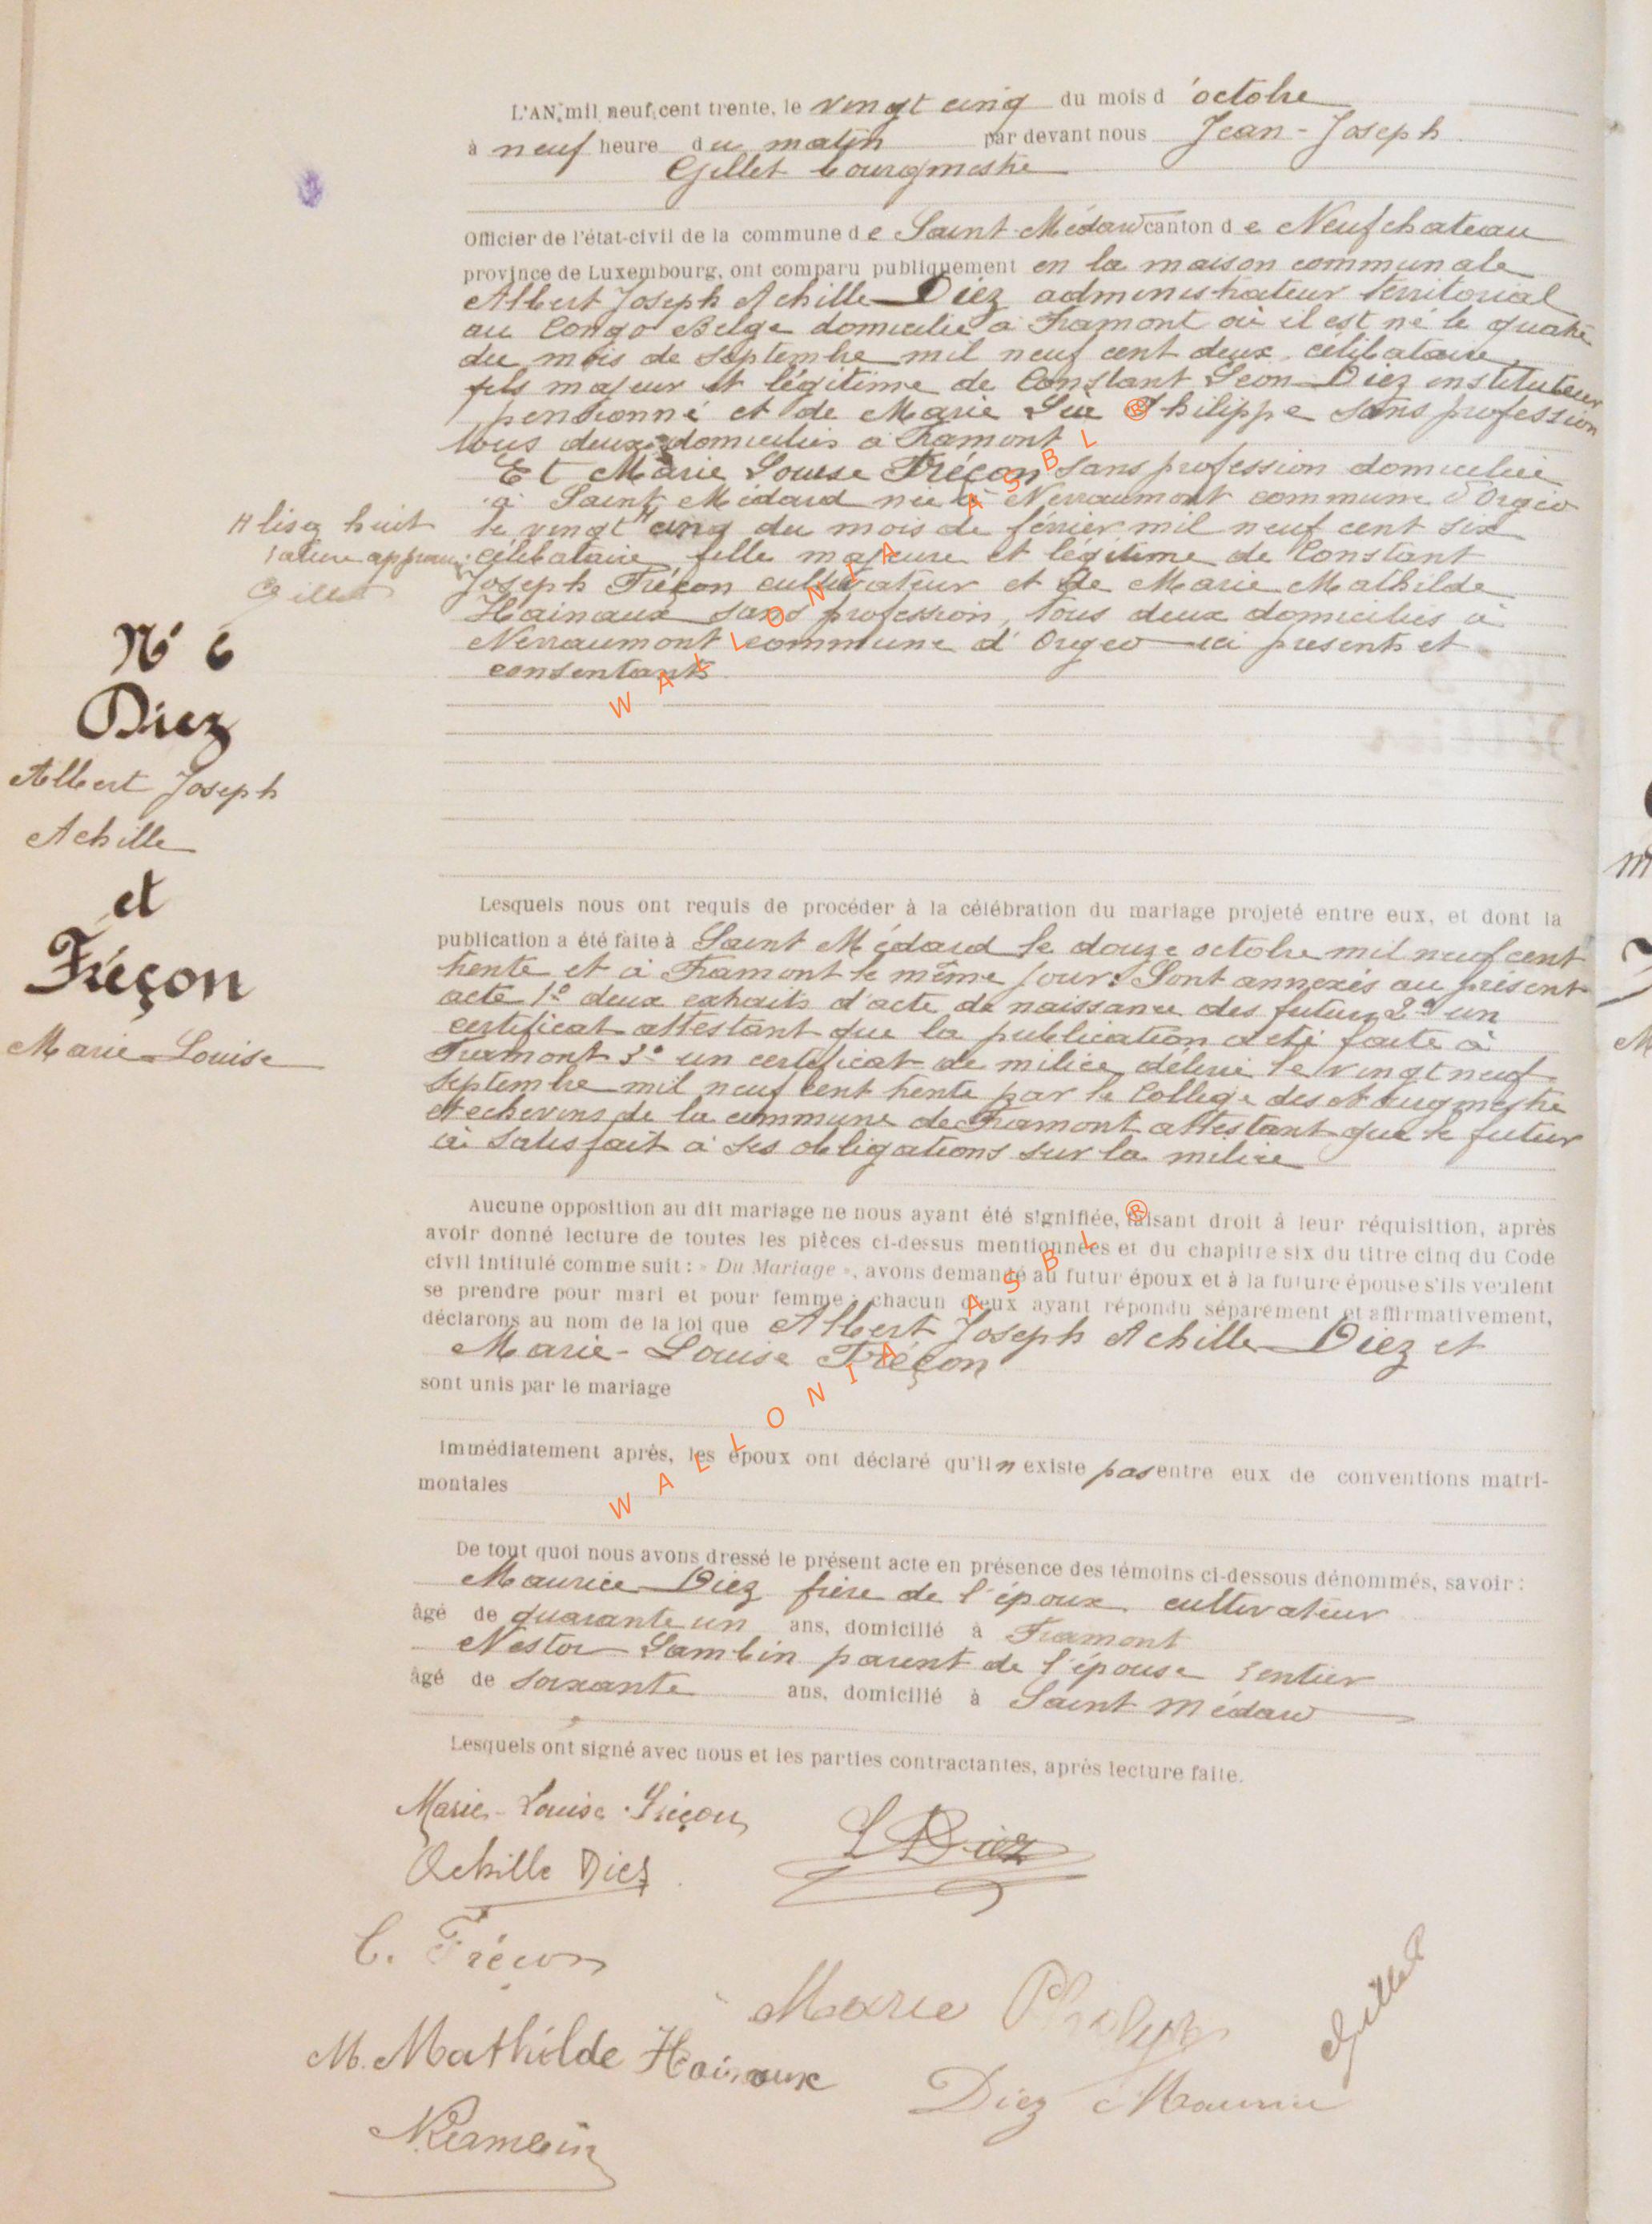 L'AN mil neuf cent trente, le vingt cinq du mois d'octobre
à neuf heure du matin par devant nous Jean-Joseph
Gillet bourgmestre
Officier de l'état-civil de la commune de Saint-Médard canton de Neufchateau
province de Luxembourg, ont comparu publiquement en la maison communale
Albert Joseph Achille Diez administrateur territorial
au Congo Belge domicilié à Framont où il est né le quatre
du mois de septembre mil neuf cent deux, célibataire,
fils majeur et légitime de Constant Léon Diez instituteur
pensionné et de Marie Philippe sans profession
tous deux domiciliés à Framont
Et Marie Louise Fréçon sans profession domiciliée
à Saint Médard née à Nevraumont commune d'Orgeo
le vingt cinq du mois de février mil neuf cent six
célibataire fille majeure et légitime de Constant
Joseph Fréçon cultivateur et de Marie Mathilde
Hainaux sans profession, tous deux domiciliés à
Nevraumont commune d'Orgeo ici présents et
consentants
H lisez huit
rature approuv
Gillet
N° 6
Diez
Albert Joseph
Achille
et
Fréçon
Marie Louise
Lesquels nous ont requis de procéder à la célébration du mariage projeté entre eux, et dont la
publication a été faite à Saint Médard le douze octobre mil neuf cent
trente et à Framont le même jour. Sont annexés au présent
acte 1° deux extraits d'acte de naissance des futurs 2° un
certificat attestant que la publication a été faite à
Framont 3° un certificat de milice délivré le vingt neuf
septembre mil neuf cent trente par le Collège des Bourgmestre
et echevins de la commune de Framont attestant que le futur
a satisfait à ses obligations sur la milice
Aucune opposition au dit mariage ne nous ayant été signifiée, faisant droit à leur réquisition, après
avoir donné lecture de toutes les pièces ci-dessus mentionnées et du chapitre six du titre cinq du Code
civil intitulé comme suit : « Du Mariage », avons demandé au futur époux et à la future épouse s'ils veulent
se prendre pour mari et pour femme ; chacun d'eux ayant répondu séparément et affirmativement,
déclarons au nom de la loi que Albert Joseph Achille Diez et
Marie-Louise Fréçon
sont unis par le mariage
Immédiatement après, les époux ont déclaré qu'il n existe pas entre eux de conventions matri-
moniales
De tout quoi nous avons dressé le présent acte en présence des témoins ci-dessous dénommés, savoir :
Maurice Diez frère de l'époux cultivateur
âgé de quarante un ans, domicilié à Framont
Nestor Lambin parent de l'épouse rentier
âgé de soixante ans, domicilié à Saint Médard
Lesquels ont signé avec nous et les parties contractantes, après lecture faite.
Marie-Louise Fréçon
L Diez
Achille Diez
C. Fréçon
Marie
Gillet
M. Mathilde Hainaux
Diez Maurice
N Lambin
WALLONIA ASBL ®
WALLONIA ASBL ®